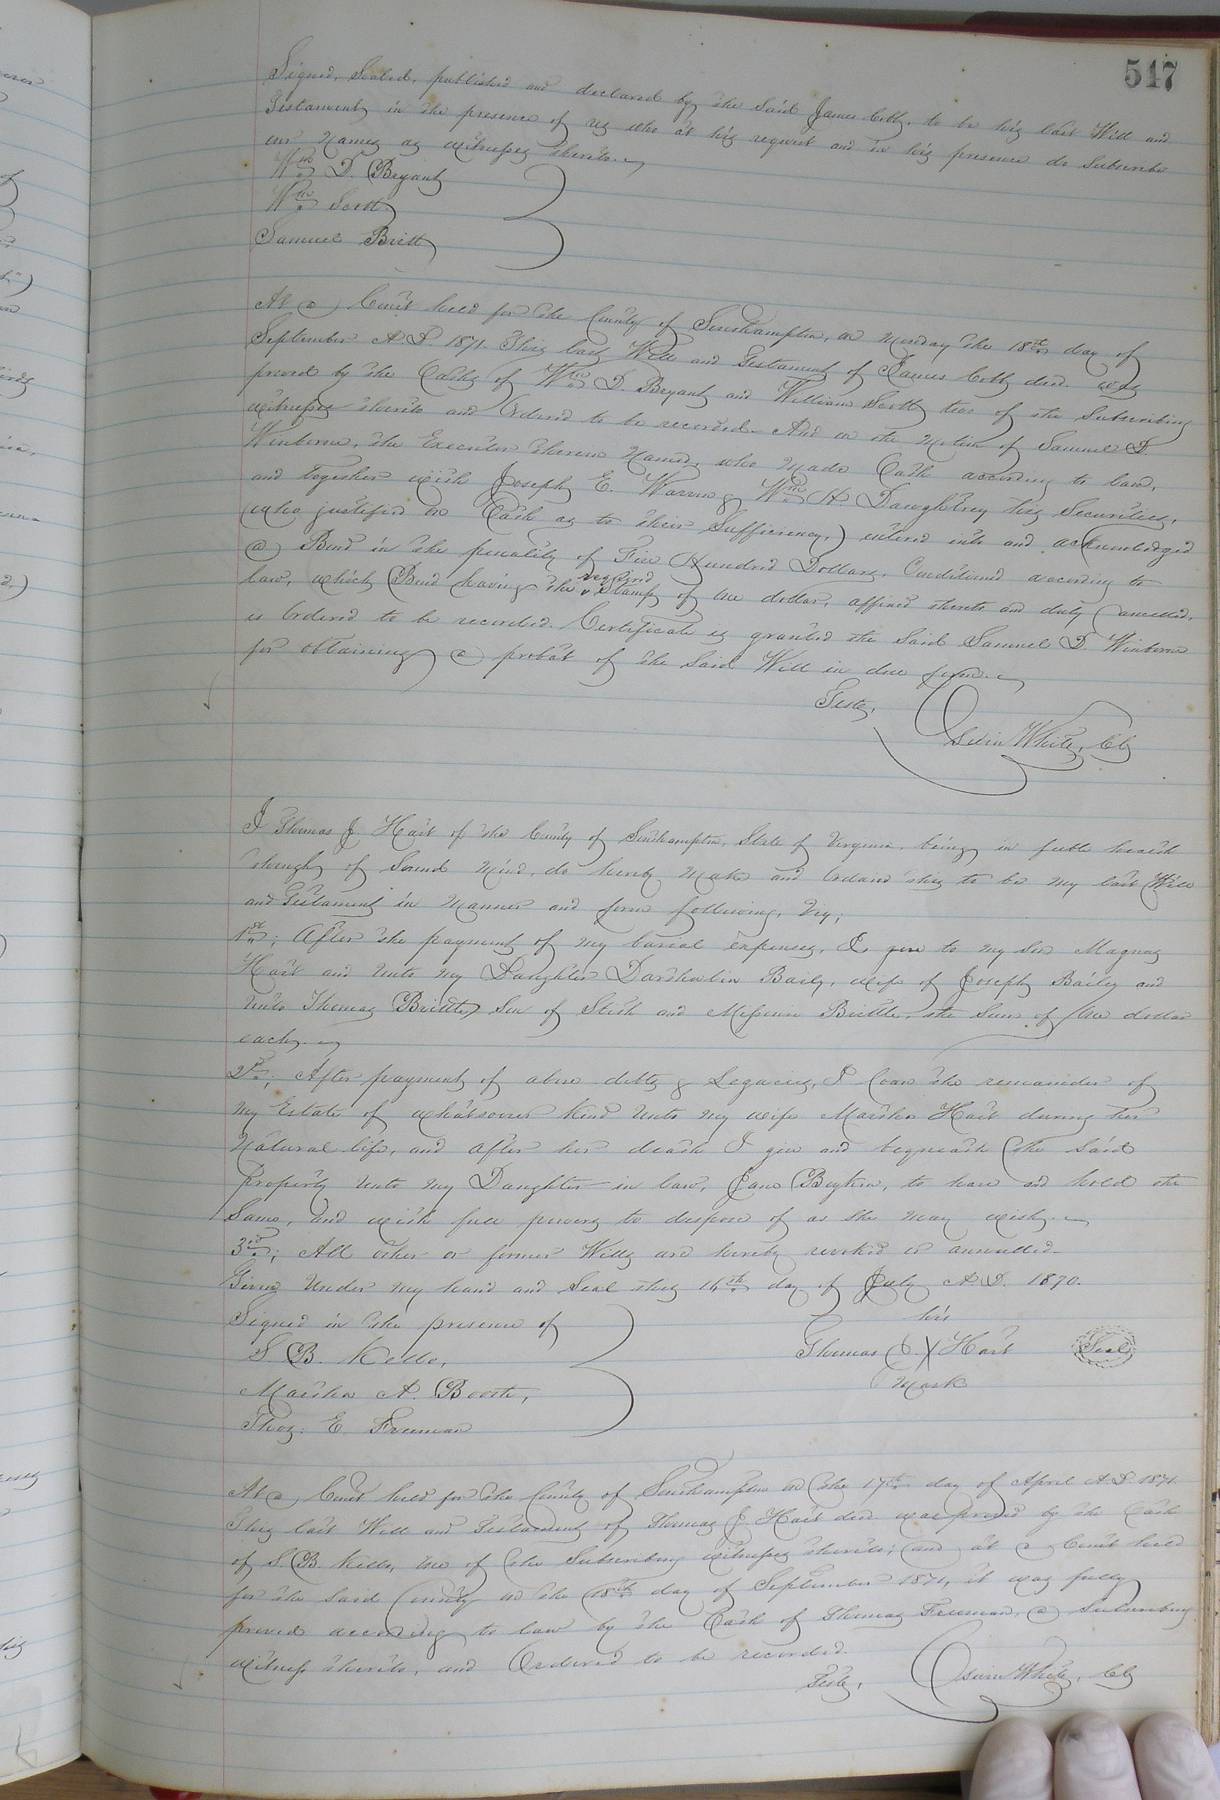 547
Signed, Sealed, published and declared by the Said James Cobb, to be his last Will and
Testament, in the presence of us who at his request and in his presence do Subscribe
our Names as witnesses thereto.
Wm D. Bryant
Wm Scott
Samuel Britt
At a Court held for the County of Southampton, on Monday the 18th day of
September A.D. 1871. This last Will and Testament of James Cobb decd. was
proved by the Oaths of Wm D. Bryant and William Scott two of the Subscribing
witnesses thereto and Ordered to be recorded. And on the Motion of Samuel D.
Winborne, the Executor therein Named, who made Oath according to law,
and together with Joseph E. Warren & Wm H. Daughtrey his Securities,
(who justified on Oath as to their Sufficiency,) entered into and acknowledged
a Bond in the penality of Five Hundred Dollars, Conditioned according to
law, which Bond having the required Stamp of one dollar, affixed thereto and duly Cancelled,
is Ordered to be recorded. Certificate is granted the Said Samuel D. Winborne
for obtaining a probat of the Said Will in due form.
Teste,
White, Clk
I Thomas J. Hart of the County of Southampton, State of Virginia, being in feeble health
though of Sound Mind, do hereby Make and Ordain this to be my last Will
and Testament in Manner and form following, Viz;
1st; After the payment of my burial expenses, I give to my Son Magnus
Hart and unto my Daughter Baily, wife of Joseph Bailey and
unto Thomas Brittle, Son of Stith and Brittle, the Sum of One dollar
each.
2nd; After payment of above debts & Legacies, I loan the remainder of
my Estate of whatsoever kind unto my wife Martha Hart during her
Natural life, and after her death I give and bequeath the Said
property unto my Daughter in law, Jane Boykin, to have and hold the
Same, and with full powers to dispose of as she may wish.
3rd; All other or former Wills are hereby revoked or annulled.
Given Under my hand and Seal this 14th day of July A.D. 1870.
Signed in the presence of
S. B. Kello,
Martha A. Booth,
Thos. E. Freeman
his
Thomas J. X Hart Seal
Mark
At a Court held for the County of Southampton on the 17th day of April A.D. 1871.
This last Will and Testament of Thomas J. Hart decd was proved by the Oath
of S. B. Kello, one of the Subscribing witnesses thereto; and at a Court held
for the Said County on the 18th day of September 1871, it was fully
proved according to law by the Oath of Thomas Freeman, a Subscribing
witness thereto, and Ordered to be recorded.
Teste,
White, Clk